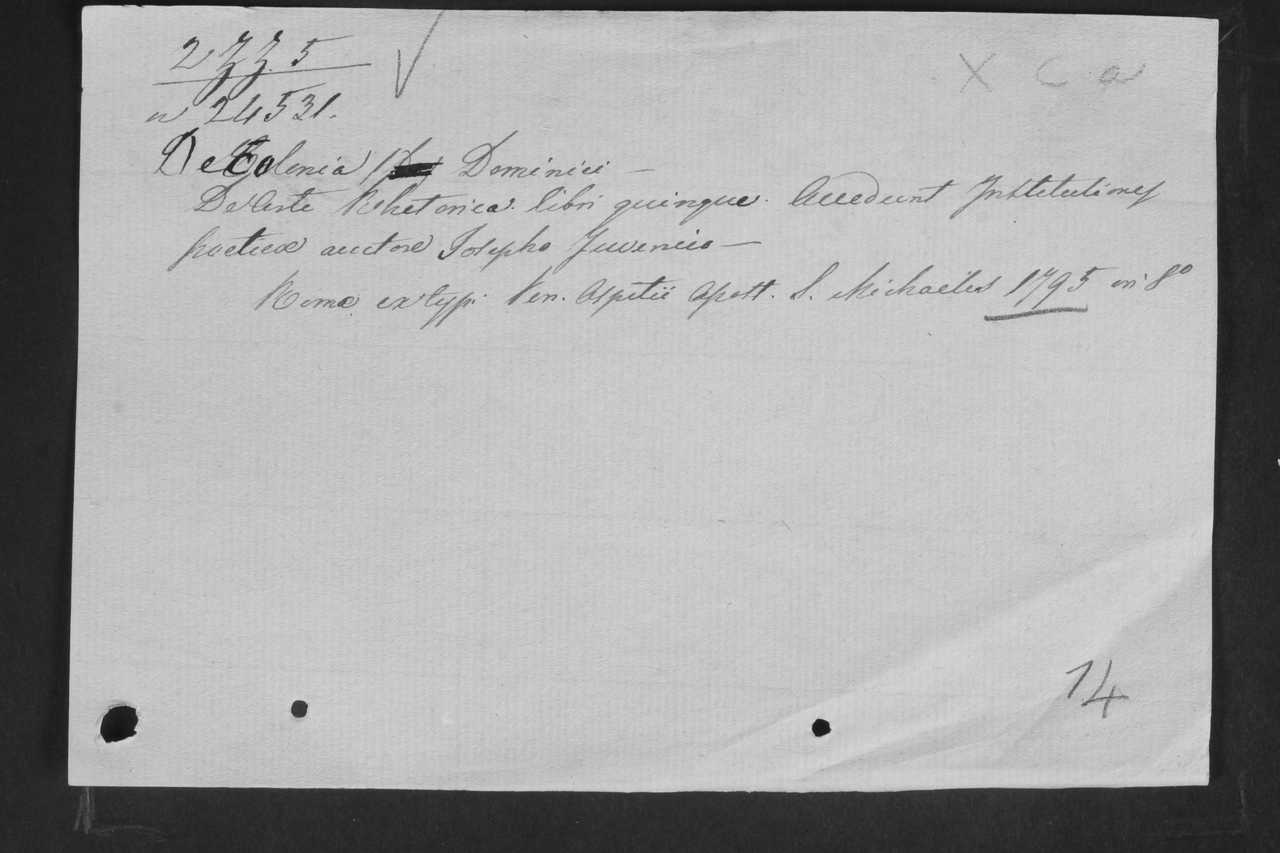 2 ZZ. 5
X C a
n 24531.
De Colonia Dominici —
De Arte Rhetorica libri quinque. Accedunt Institutiones
poeticae auctore Josepho Juvencio —
Romae ex typ. Ven. Ospitii Apost. S. Michaelis 1795 in 8º
14